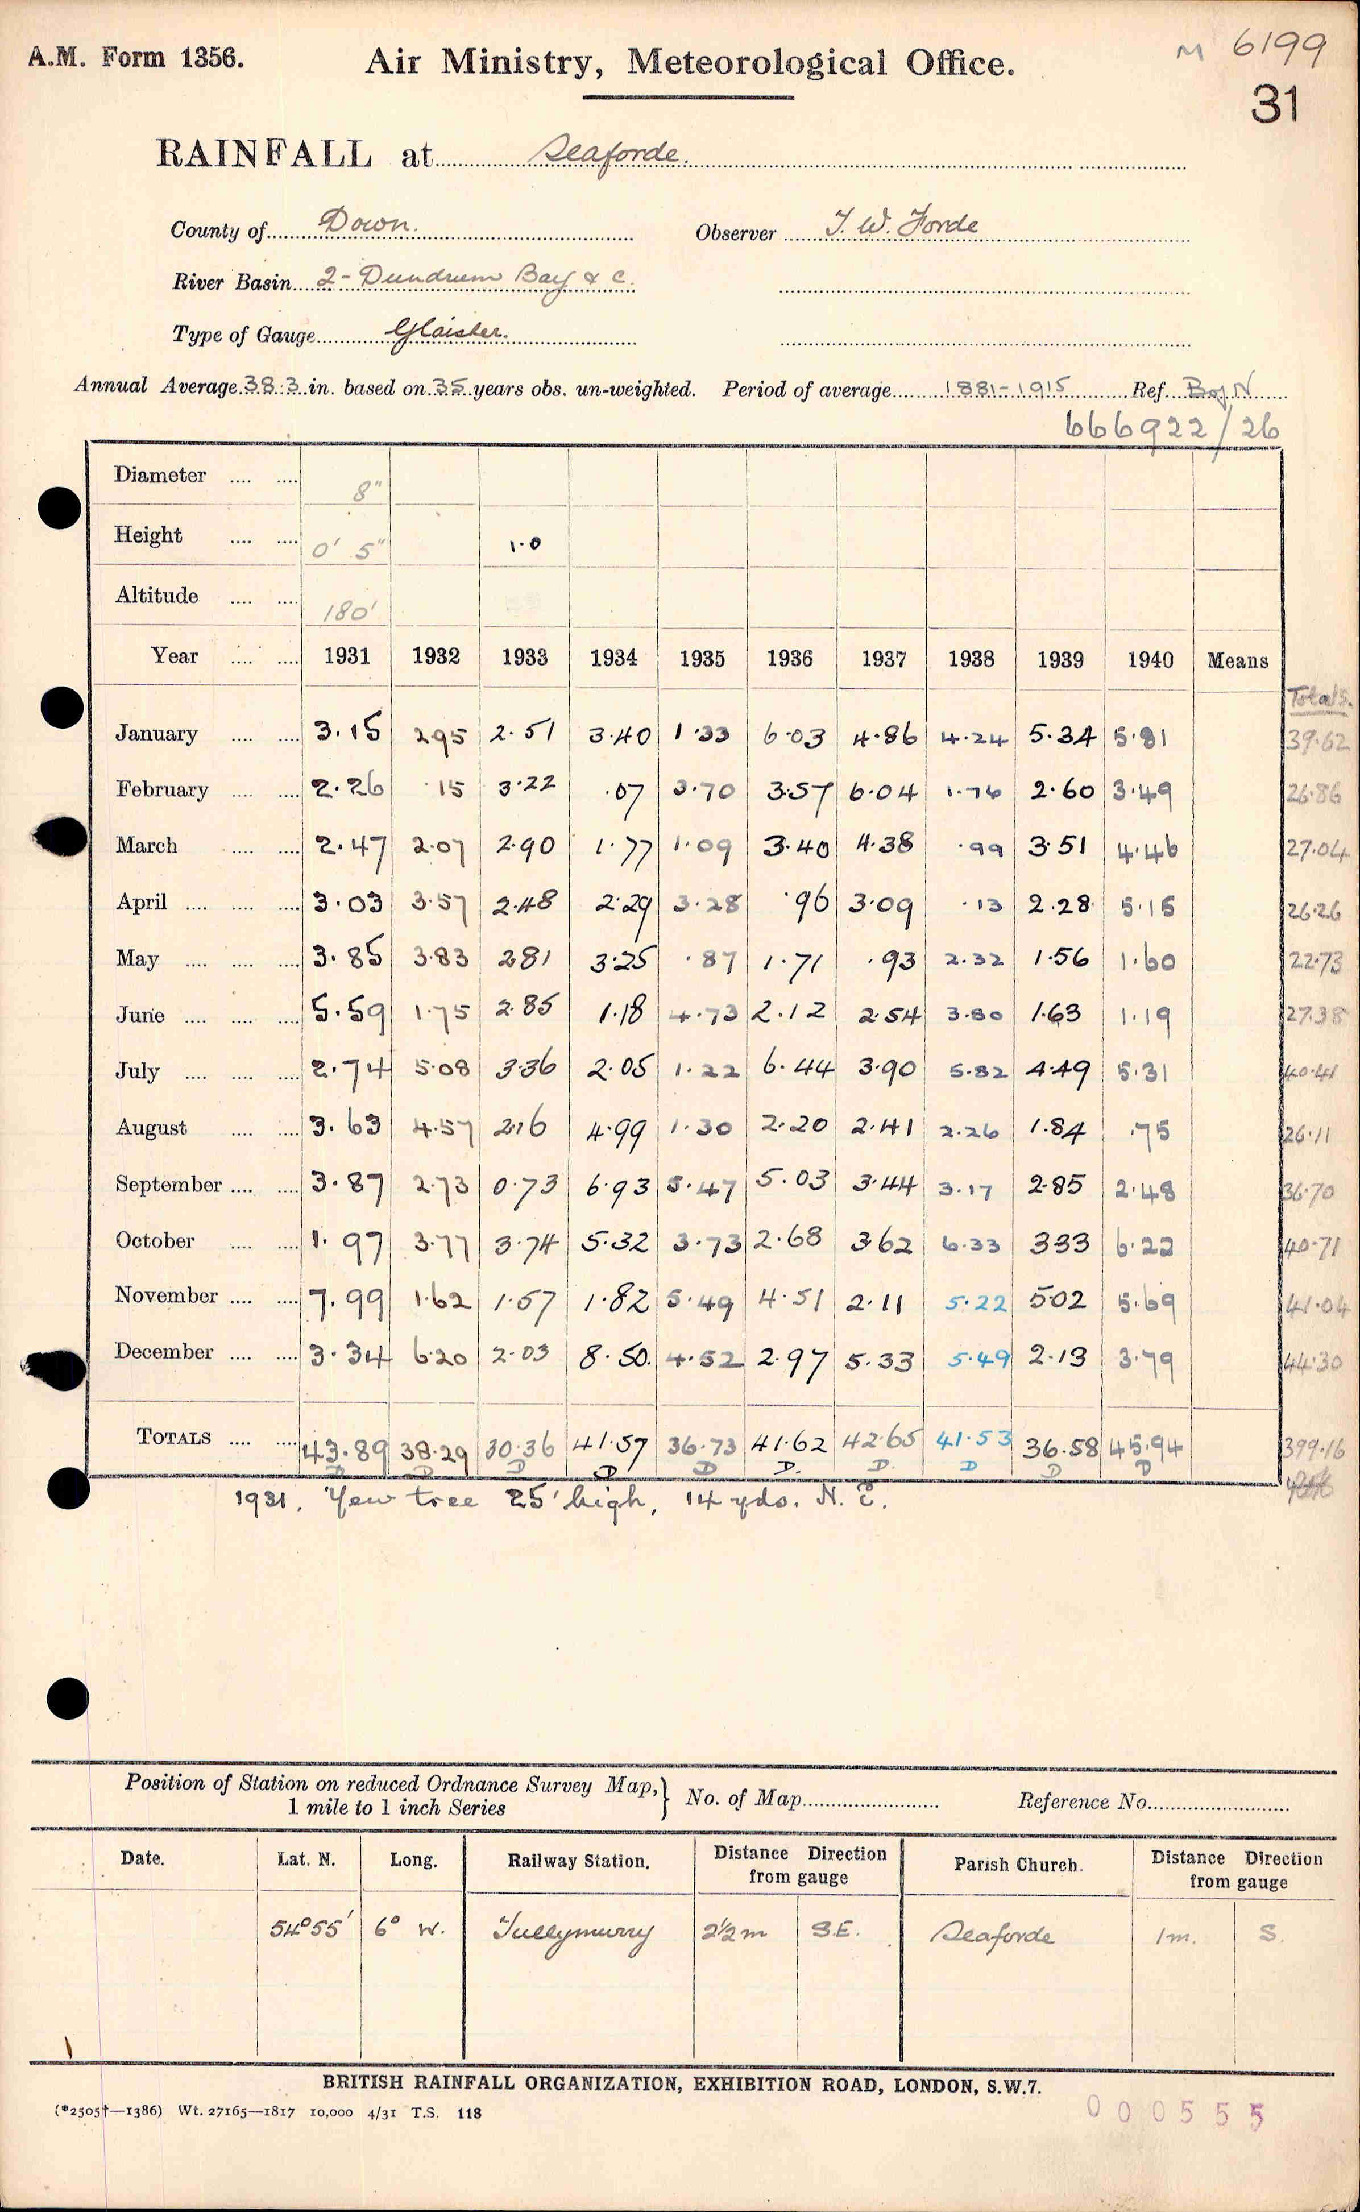 A.M. Form 1356.
Air Ministry, Meteorological Office.
M 6199
31
RAINFALL at Seaforde.
County of Down. Observer T. W. Forde
River Basin 2 - Dundrum Bay & c.
Type of Gauge Glaisher.
Annual Average 38.3 in. based on 35 years obs. un-weighted. Period of average 1881-1915 Ref. Bog N
666922/26
Diameter 8"
Height 0' 5" 1.0
Altitude 180'
Year 1931 1932 1933 1934 1935 1936 1937 1938 1939 1940 Means
Totals.
January 3.15 2.95 2.51 3.40 1.33 6.03 4.86 4.24 5.34 5.81 39.62
February 2.26 .15 3.22 .07 3.70 3.57 6.04 1.76 2.60 3.49 26.86
March 2.47 2.07 2.90 1.77 1.09 3.40 4.38 .99 3.51 4.46 27.04
April 3.03 3.57 2.48 2.29 3.28 .96 3.09 .13 2.28 5.15 26.26
May 3.85 3.83 2.81 3.25 .87 1.71 .93 2.32 1.56 1.60 22.73
June 5.59 1.75 2.85 1.18 4.73 2.12 2.54 3.80 1.63 1.19 27.38
July 2.74 5.08 3.36 2.05 1.22 6.44 3.90 5.82 4.49 5.31 40.41
August 3.63 4.57 2.16 4.99 1.30 2.20 2.41 2.26 1.84 .75 26.11
September 3.87 2.73 0.73 6.93 5.47 5.03 3.44 3.17 2.85 2.48 36.70
October 1.97 3.77 3.74 5.32 3.73 2.68 3.62 6.33 3.33 6.22 40.71
November 7.99 1.62 1.57 1.82 5.49 4.51 2.11 5.22 5.02 5.69 41.04
December 3.34 6.20 2.03 8.50 4.52 2.97 5.33 5.49 2.13 3.79 44.30
TOTALS 43.89 38.29 30.36 41.57 36.73 41.62 42.65 41.53 36.58 45.94 399.16
D D D D D D. D D D D
1931. Yew tree 25' high, 14 yds. N. E.
Position of Station on reduced Ordnance Survey Map, 1 mile to 1 inch Series } No. of Map Reference No.
Date. Lat. N. Long. Railway Station. Distance Direction from gauge Parish Church. Distance Direction from gauge
54° 55' 6° W. Tullymurry 2½ m S.E. Seaforde 1 m. S.
BRITISH RAINFALL ORGANIZATION, EXHIBITION ROAD, LONDON, S.W.7.
(*2505†—1386) Wt. 27165—1817 10,000 4/31 T.S. 118
000555